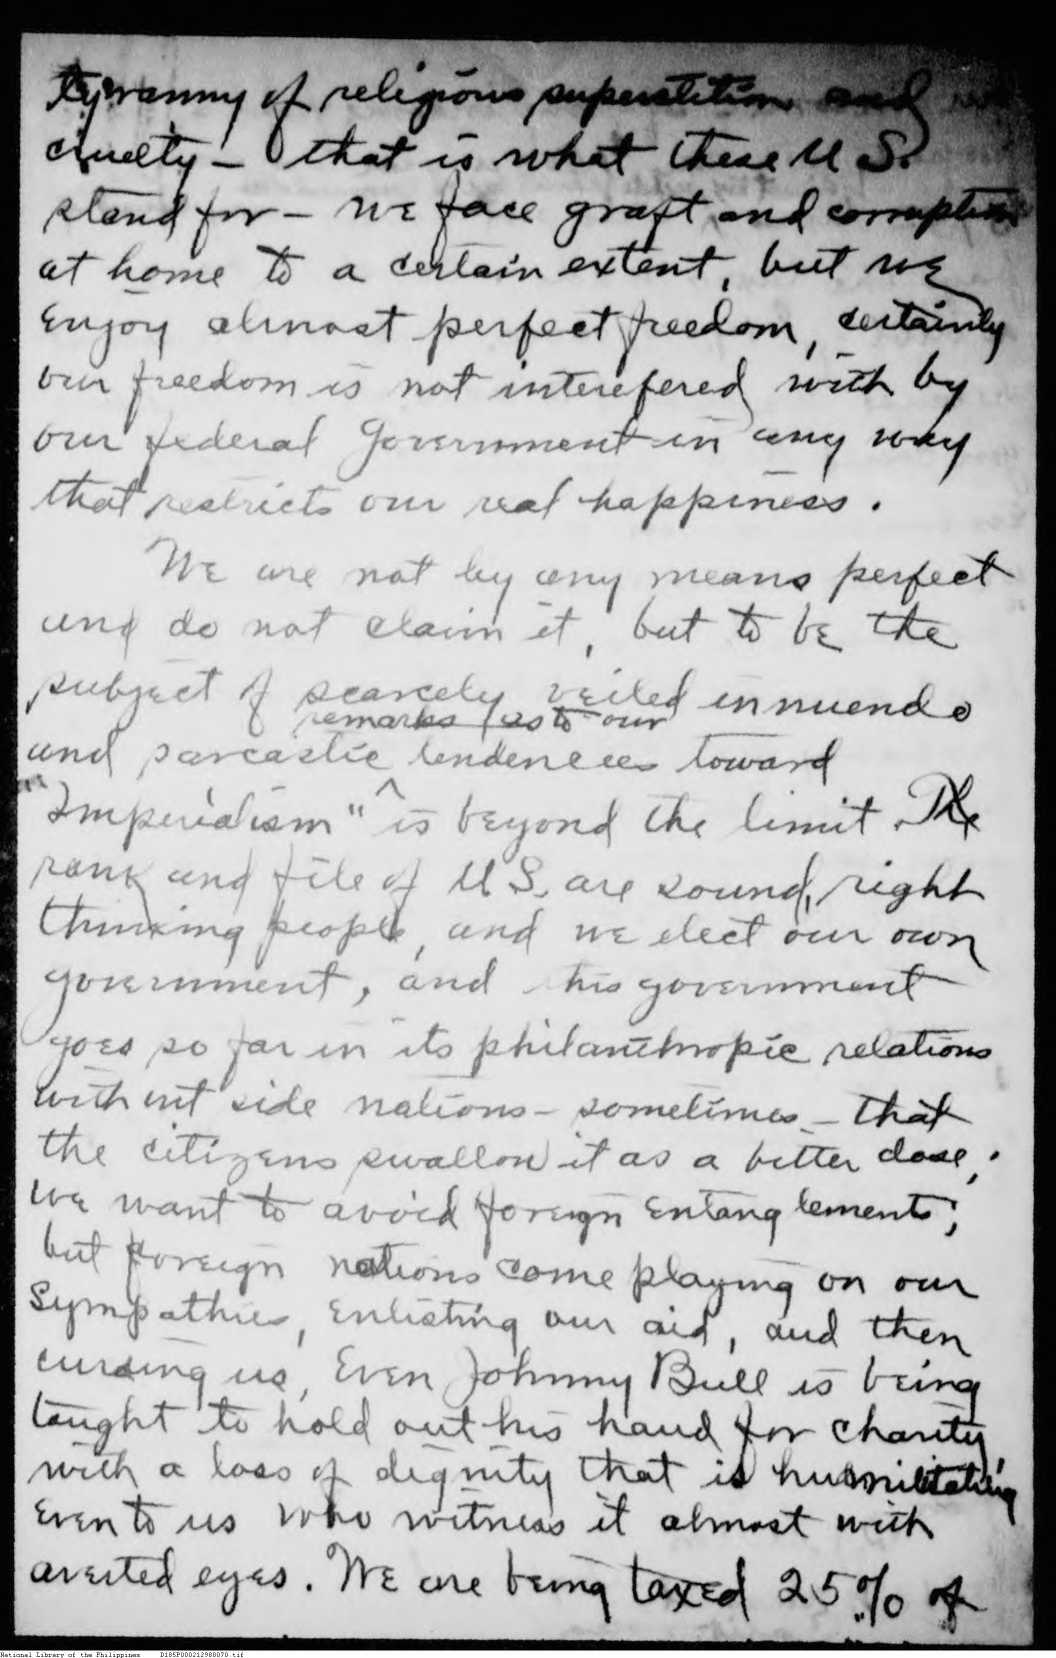 tyranny of religious superstition and
cruelty – that is what these U S.
stand for – we face graft and corruption
at home to a certain extent, but we
enjoy almost perfect freedom, certainly
our freedom is not interefered with by
our federal government in any way
that restricts our real happiness.
We are not by any means perfect
and do not claim it, but to be the
subject of scarcely veiled innuendo
remarks as to our
and sarcastic tendencies toward
"Imperialism" ^ is beyond the limit. The
rank and file of U S. are sound, right
thinking people, and we elect our own
government, and this government
goes so far in its philanthropic relations
with out side nations – sometimes – that
the citizens swallow it as a bitter dose;
we want to avoid foreign entanglements;
but foreign nations come playing on our
sympathies, enlisting our aid, and then
cursing us, Even Johnny Bull is being
taught to hold out his hand for charity,
with a loss of dignity that is humilitating
even to us who witness it almost with
averted eyes. We are being taxed 25% of
National Library of the Philippines D185P000212988070.tif